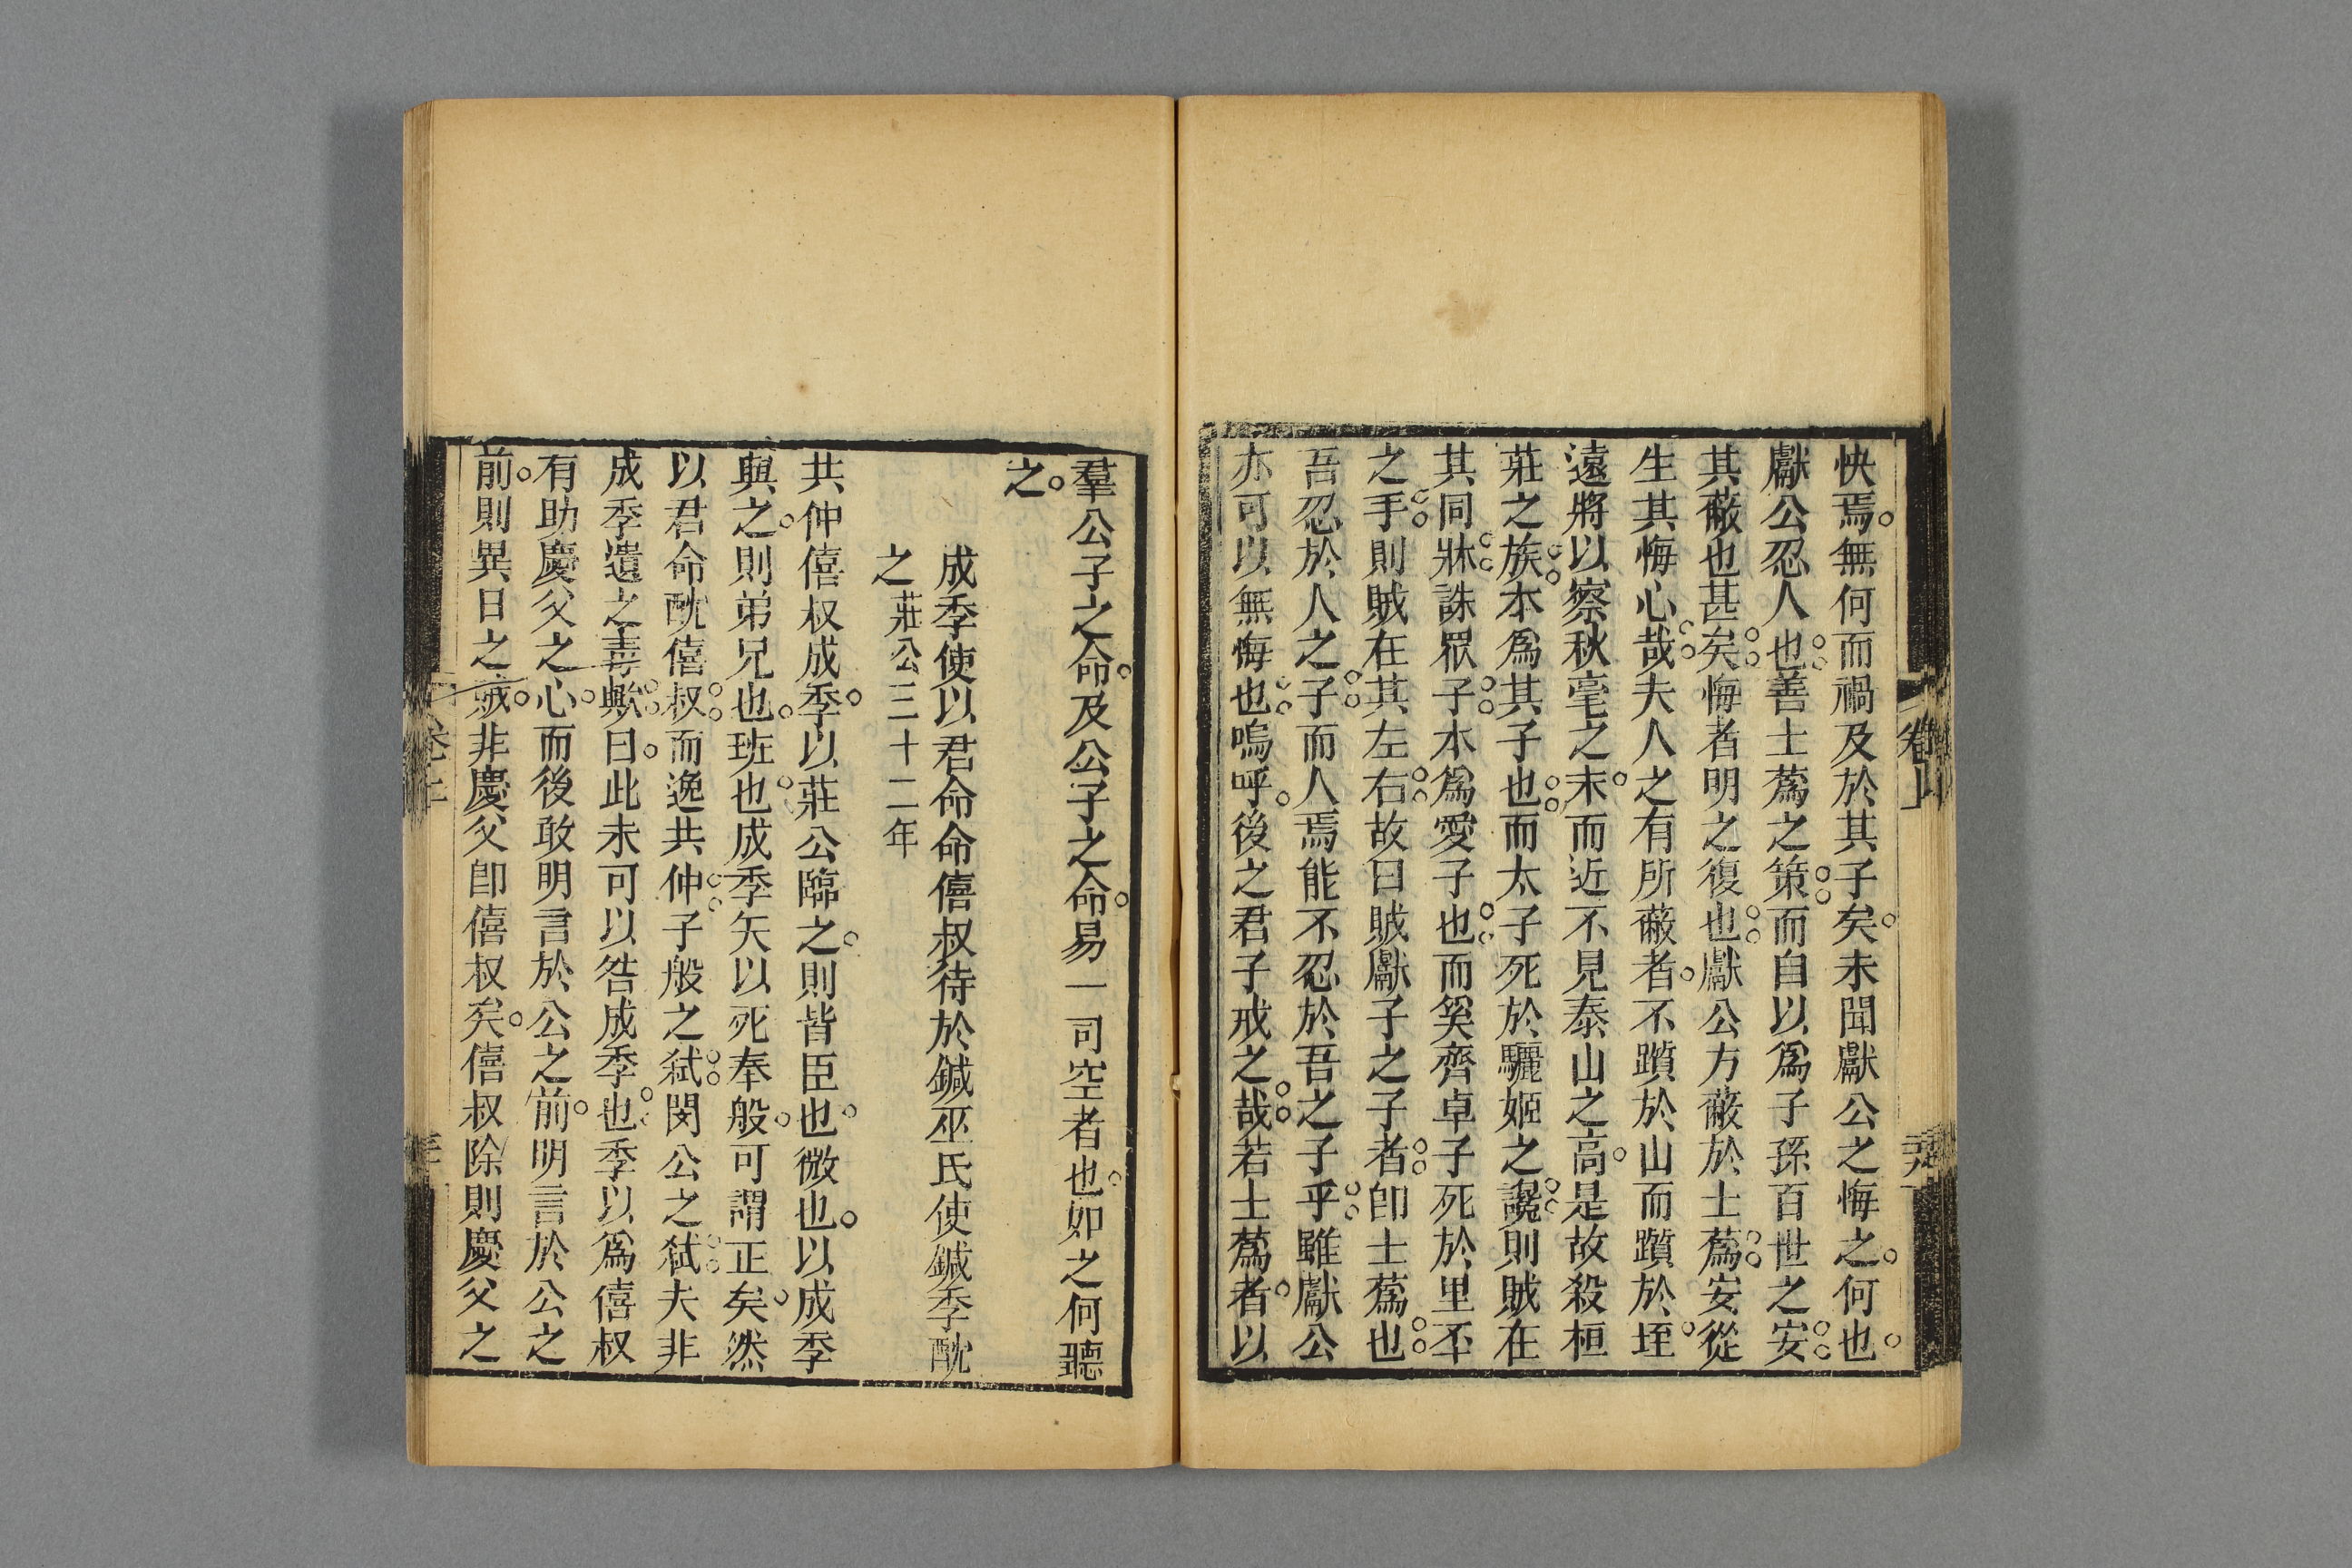 快焉無何而禍及於其子矣未聞獻公之悔之何也
獻公忍人也善士蔿之策而自以爲子孫百世之安
其蔽也甚矣悔者明之復也獻公方蔽於士蔿安從
生其悔心哉夫人之有所蔽者不躓於山而躓於垤
遠將以察秋毫之末而近不見泰山之高是故殺桓
莊之族本爲其子也而太子死於驪姬之讒則賊在
其同牀誅眾子本爲愛子也而奚齊卓子死於里丕
之手則賊在其左右故曰賊獻子之子者卽士蔿也
吾忍於人之子而人焉能不忍於吾之子乎雖獻公
亦可以無悔也嗚呼後之君子戒之哉若士蔿者以
羣公子之命及公子之命易一司空者也如之何聽
之
成季使以君命命僖叔待於鍼巫氏使鍼季酖
之莊公三十二年
共仲僖叔成季以莊公臨之則皆臣也微也以成季
與之則弟兄也班也成季矢以死奉般可謂正矣然
以君命酖僖叔而逸共仲子般之弒閔公之弒夫非
成季遺之毒歟曰此未可以咎成季也季以爲僖叔
有助慶父之心而後敢明言於公之前明言於公之
前則異日之賊非慶父卽僖叔矣僖叔除則慶父之